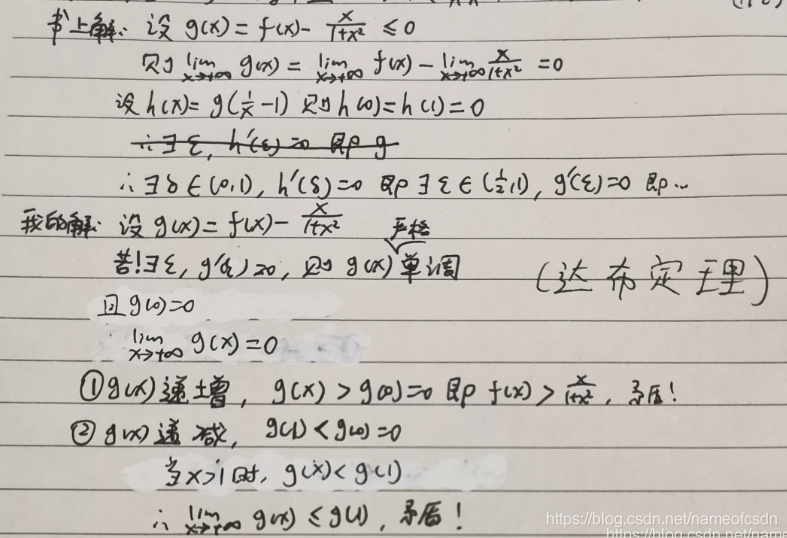 书上解: 设 g(x) = f(x) - x/(1+x²) ≤ 0
则 lim x→+∞ g(x) = lim x→+∞ f(x) - lim x→+∞ x/(1+x²) = 0
设 h(x) = g(1/x - 1) 则 h(0) = h(1) = 0
∴ ∃ ξ, h'(ξ) = 0 即 g
∴ ∃ δ ∈ (0,1), h'(δ) = 0 即 ∃ ξ ∈ (1/2, 1), g'(ξ) = 0 即...
我的解: 设 g(x) = f(x) - x/(1+x²)
若!∃ ξ, g'(ξ) = 0, 则 g(x) 严格单调
(达布定理)
且 g(0) = 0
lim x→+∞ g(x) = 0
① g(x) 递增, g(x) > g(0) = 0 即 f(x) > x/(1+x²), 矛盾!
② g(x) 递减, g(1) < g(0) = 0
当 x>1 时, g(x) < g(1)
∴ lim x→+∞ g(x) ≤ g(1), 矛盾!
https://blog.csdn.net/nameofcsdn